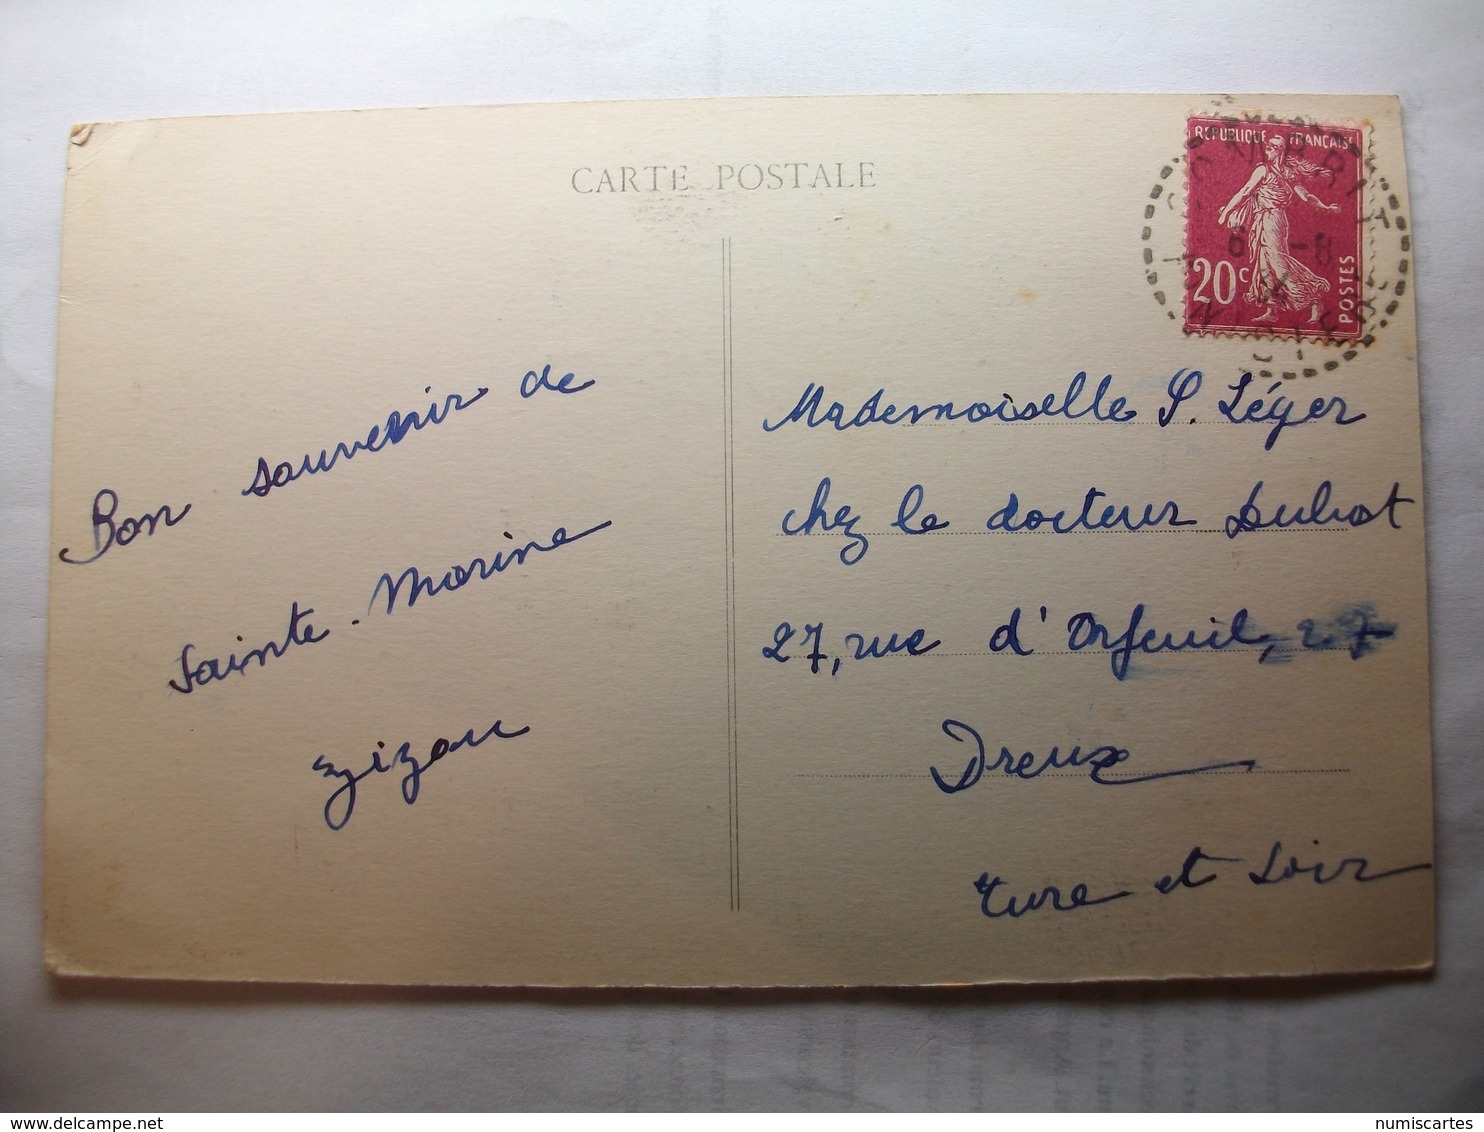 CARTE POSTALE
REPUBLIQUE FRANÇAISE
20c
POSTES
COMBRIT
6 -8
34
FINISTERE
Bon souvenir de
Sainte-Marine
Zizou
Mademoiselle P. Léger
chez le docteur Dubot
27, rue d'Orfeuil, 27
Dreux
Eure et Loir
numiscartes